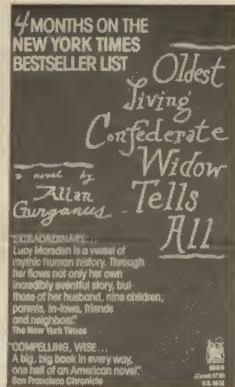 4 MONTHS ON THE
NEW YORK TIMES
BESTSELLER LIST
Oldest
Living
Confederate
Widow
Tells
All
a novel by
Allan
Gurganus
"EXTRAORDINARY...
Lucy Marsden is a vessel of
mythic human history. Through
her flows not only her own
incredibly eventful story, but
those of her husband, nine children,
parents, in-laws, friends
and neighbors."
The New York Times
"COMPELLING, WISE...
A big, big book in every way,
one hell of an American novel."
San Francisco Chronicle